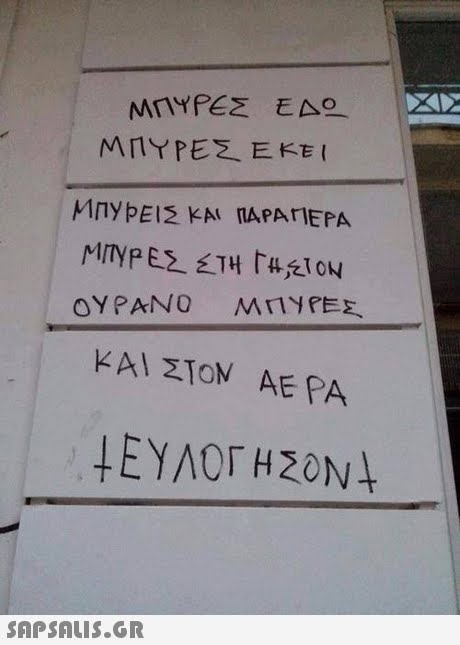 ΜΠΥΡΕΣ ΕΔΩ
ΜΠΥΡΕΣ ΕΚΕΙ
ΜΠΥΡΕΙΣ ΚΑΙ ΠΑΡΑΠΕΡΑ
ΜΠΥΡΕΣ ΣΤΗ ΓΗ,ΣΤΟΝ
ΟΥΡΑΝΟ ΜΠΥΡΕΣ
ΚΑΙ ΣΤΟΝ ΑΕΡΑ
†ΕΥΛΟΓΗΣΟΝ†
SAPSALIS.GR